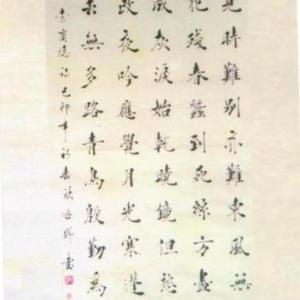 見時難別亦難東風無
花殘春蠶到死絲方盡
成灰淚始乾曉鏡但愁
改夜吟應覺月光寒蓬
去無多路青鳥殷勤為
李商隱詩己卯年初春 書